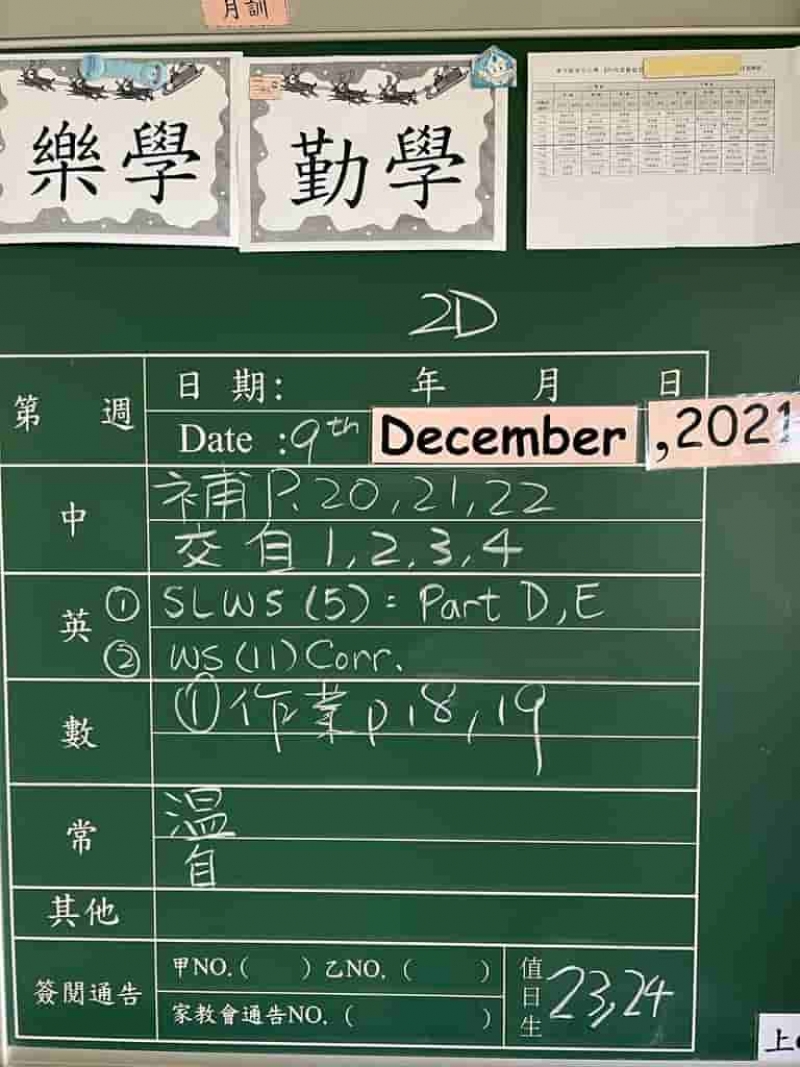 月訓
樂學
勤學
2D
第 週
日 期: 年 月 日
Date :9th December ,2021
中
補 P.20,21,22
交 自 1,2,3,4
英
① SLWS (5) : Part D,E
② WS (11) Corr.
數
① 作業 p 18,19
常
溫
自
其他
簽閱通告
甲NO.( ) 乙NO. ( )
家教會通告NO. ( )
值日生 23,24
上